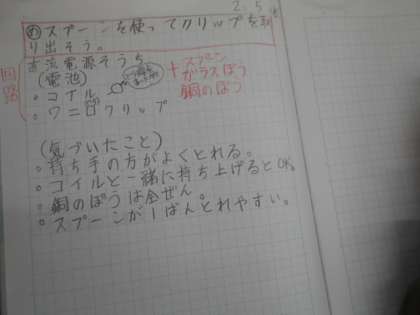 2.5
め スプーンを使ってクリップを取
り出そう。
回路
直流電源そうち
(電池)
・コイル
・ワニ口クリップ
+スプーン
ガラスぼう
銅のぼう
(気づいたこと)
・持ち手の方がよくとれる。
・コイルと一緒に持ち上げるとOK。
・銅のぼうは全ぜん。
・スプーンが1ばんとれやすい。